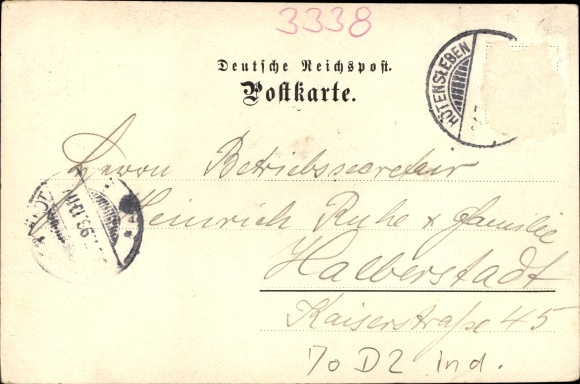 3338
Deutsche Reichspost.
Postkarte.
HÖTENSLEBEN
Herrn Betriebssecretair
Heinrich Ruhe & Familie
Halberstadt
Kaiserstraße 45
70 D2 Ind.